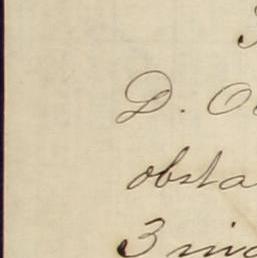 D. O
obsta
3 min